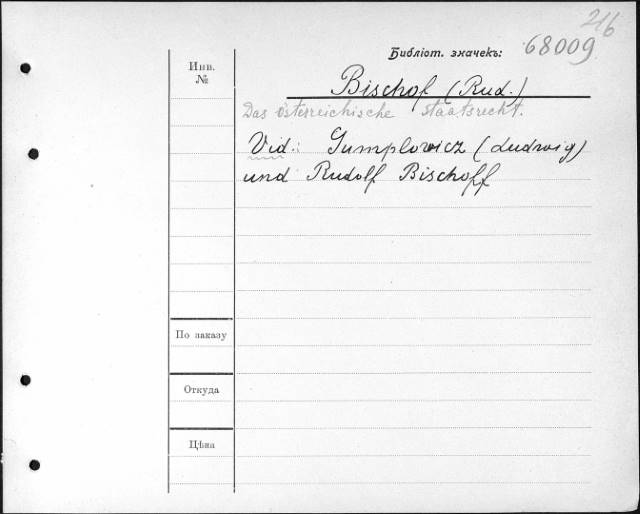 216
Библіот. значекъ: 68009
Инв.
№
Bischof (Rud.)
Das österreichische Staatsrecht.
Vid.: Gumplowicz (Ludwig)
und Rudolf Bischoff
По заказу
Откуда
Цѣна